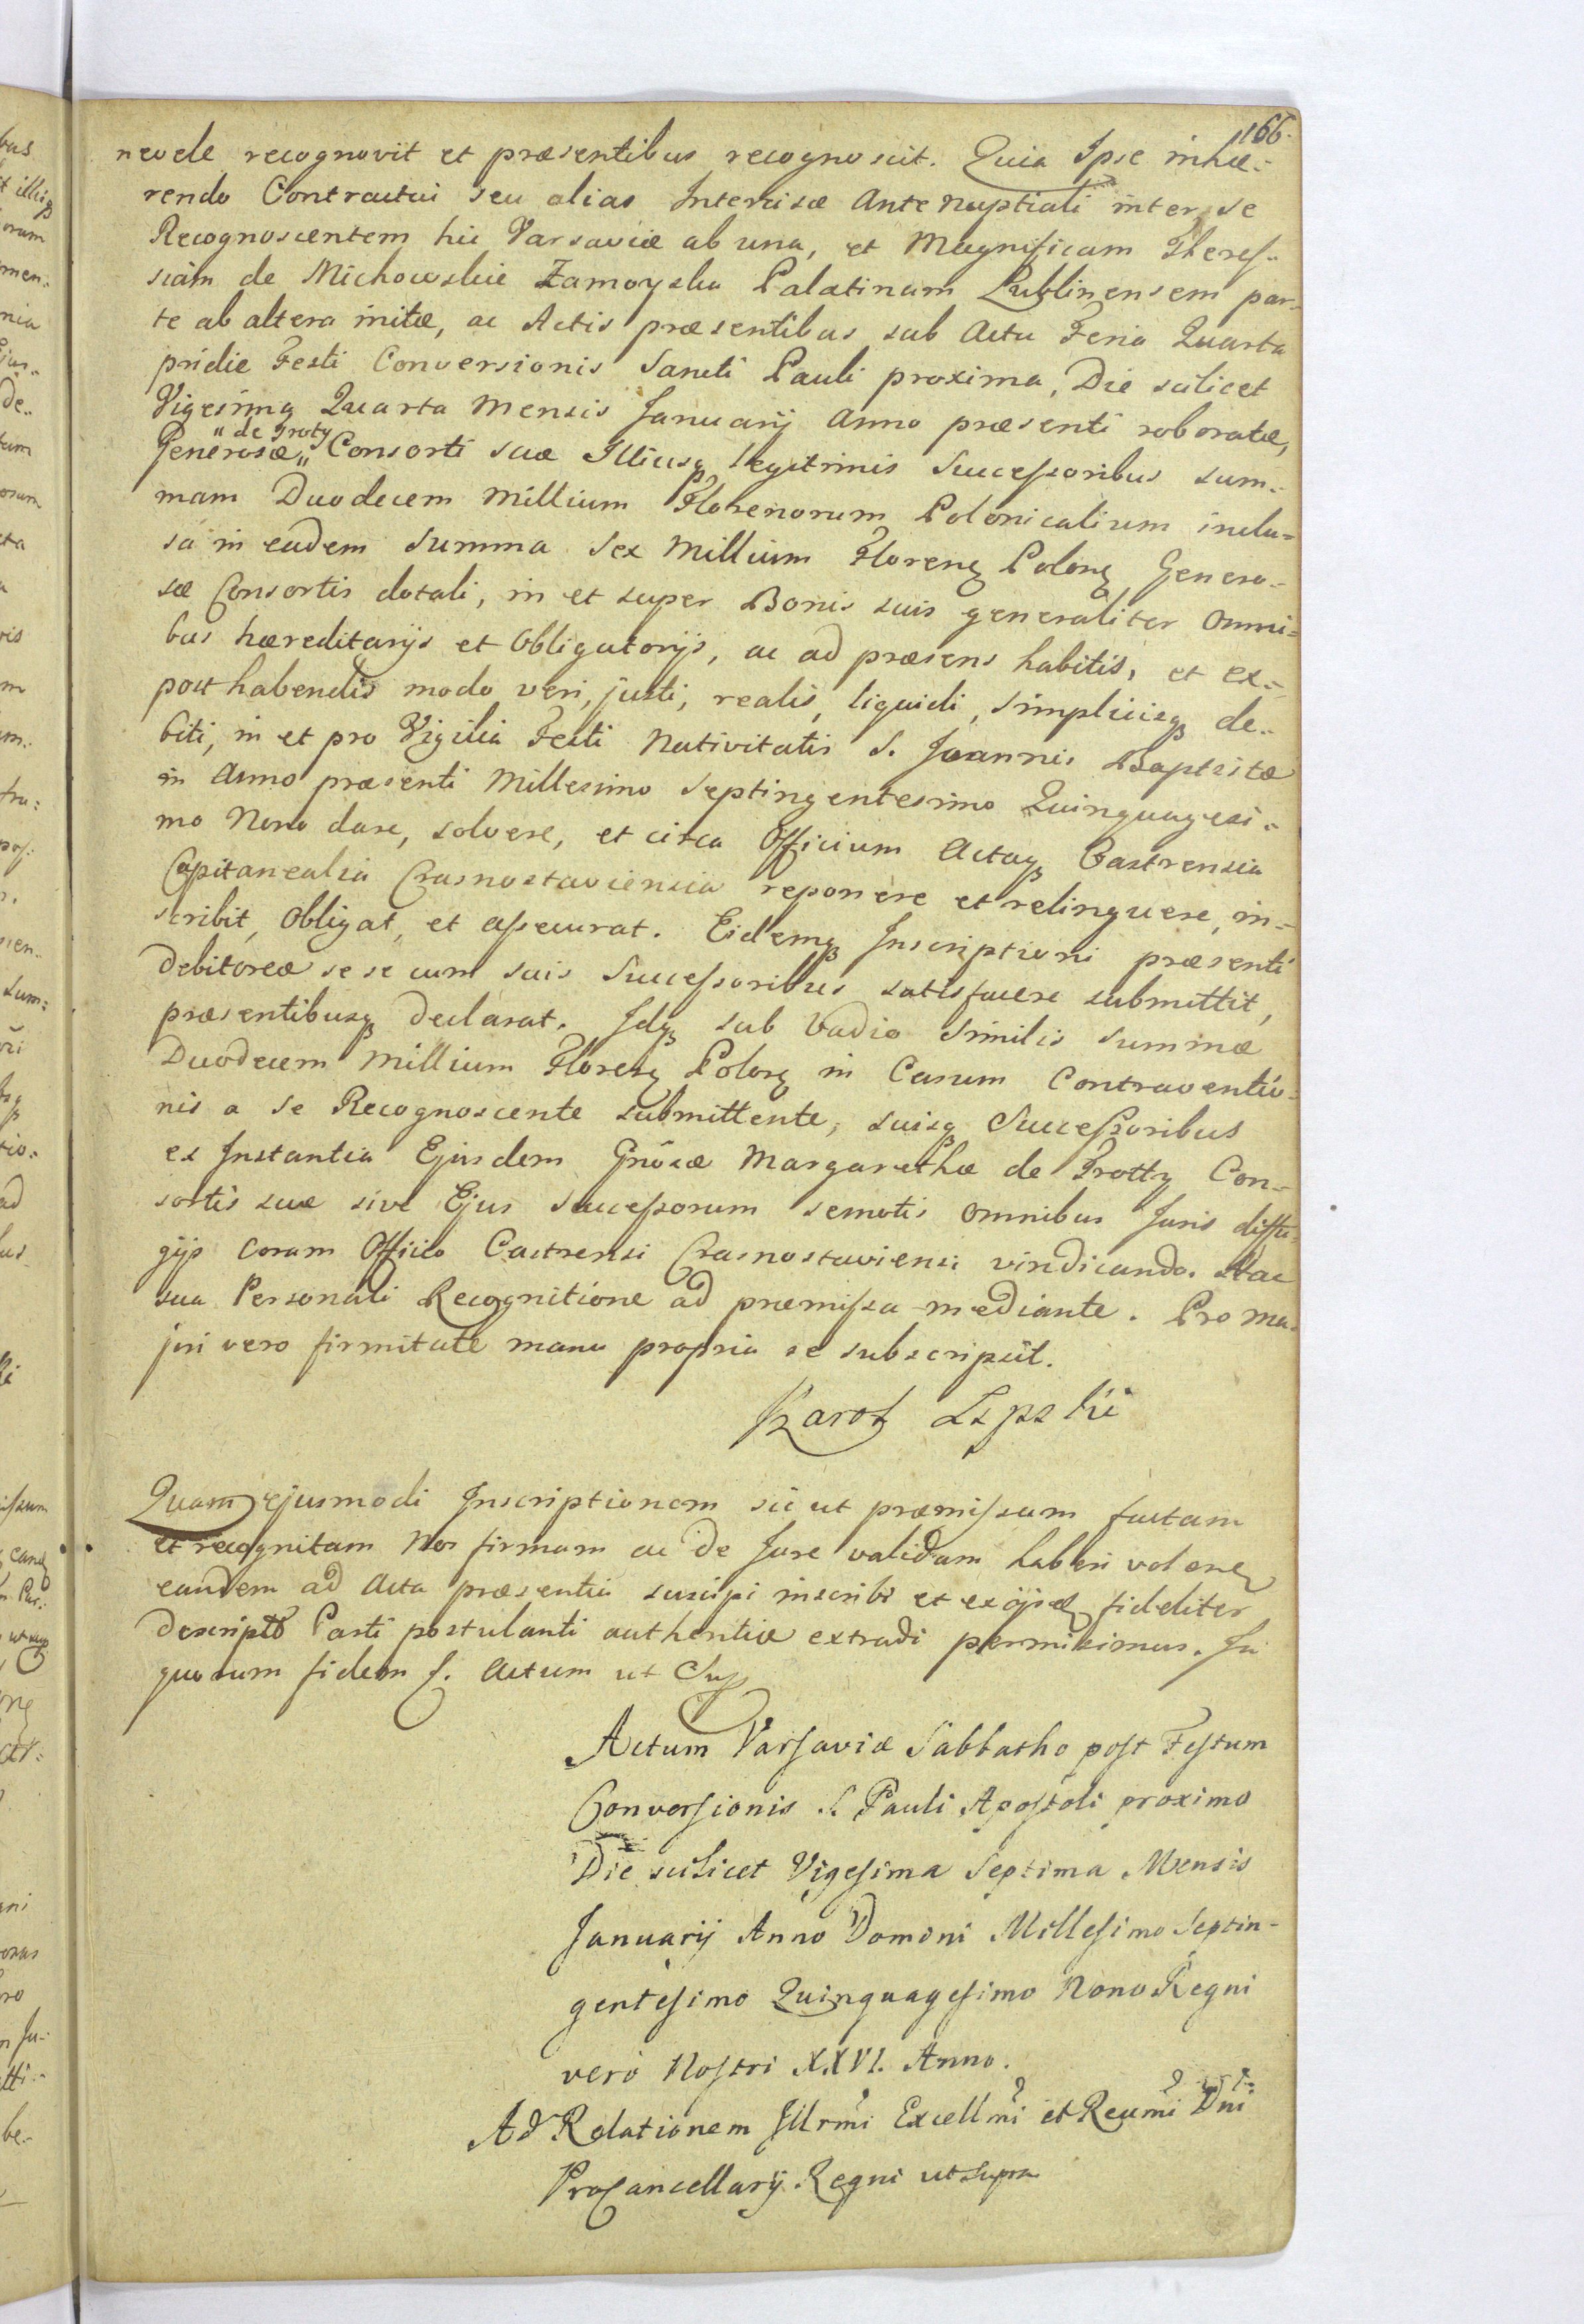 166.
nevole recognovit et præsentibus recognoscit. Quia Ipse inhæ-
rendo Contractui seu alias Intercisæ Antenuptiali inter se
Recognoscentem hic Varsaviæ ab una, et Magnificam Theres-
siam de Michowskie Zamoyska Palatinam Lublinensem par-
te ab altera initæ, ac Actis præsentibus sub Actu Feria Quarta
pridie Festi Conversionis Sancti Pauli proxima, Die scilicet
Vigesima Quarta Mensis Januarij Anno præsenti roboratæ,
" de Troty
Generosæ " Consorti suæ Illiusq legitimis Successoribus sum-
mam Duodecem Millium Florenorum Polonicalium inclu-
sa in eadem Summa Sex Millium Floren Polon Genero-
sæ Consortis dotali, in et super Bonis suis generaliter omni-
bus hæreditarijs et Obligatorijs, ac ad præsens habitis, et ex-
post habendis modo veri, justi, realis, liquidi, simplicisq de-
biti, in et pro Vigilia Festi Nativitatis S. Joannis Baptistæ
in Anno præsenti Millesimo Septingentesimo Quinquagesi-
mo Nono dare, solvere, et circa Officium Actaq Castrensia
Capitanealia Crasnostaviensia reponere et relinquere, in-
scribit, Obligat, et assecurat. Eidemq Inscriptioni præsenti
Debitoreæ se se cum suis Successoribus satisfacere submittit,
præsentibusq declarat. Idq sub Vadio Similis Summæ
Duodecem Millium Floren Polon in Casum Contraventio-
nis a se Recognoscente submittente, suisq Successoribus
ex Instantia Ejusdem Gnosæ Margarethæ de Trotty Con-
sortis suæ sive Ejus Successorum semotis omnibus Juris diffu-
gijs coram Officio Castrensi Crasnostaviensi vindicando. Hac
sua Personali Recognitione ad præmissa mediante. Pro ma-
jori vero firmitate manu propria se subscripsit.
Karol Lipski
Quam ejusmodi Inscriptionem sic ut præmissum factam
et recognitam Nos firmam ac de Jure validam haberi volen
eandem ad Acta præsentia suscipi inscribi et ex fideliter
descript Parti postulanti authentice extradi permisimus. In
quorum fidem f. Actum ut Sup
Actum Varsaviæ Sabbatho post Festum
Conversionis S. Pauli Apostoli proximo
Die scilicet Vigesima Septima Mensis
Januarij Anno Domini Millesimo Septin-
gentesimo Quinquagesimo Nono Regni
vero Nostri XXVI. Anno.
Ad Relationem Illrmi Excellmi et Reumi Dni
ProCancellarij Regni ut supra